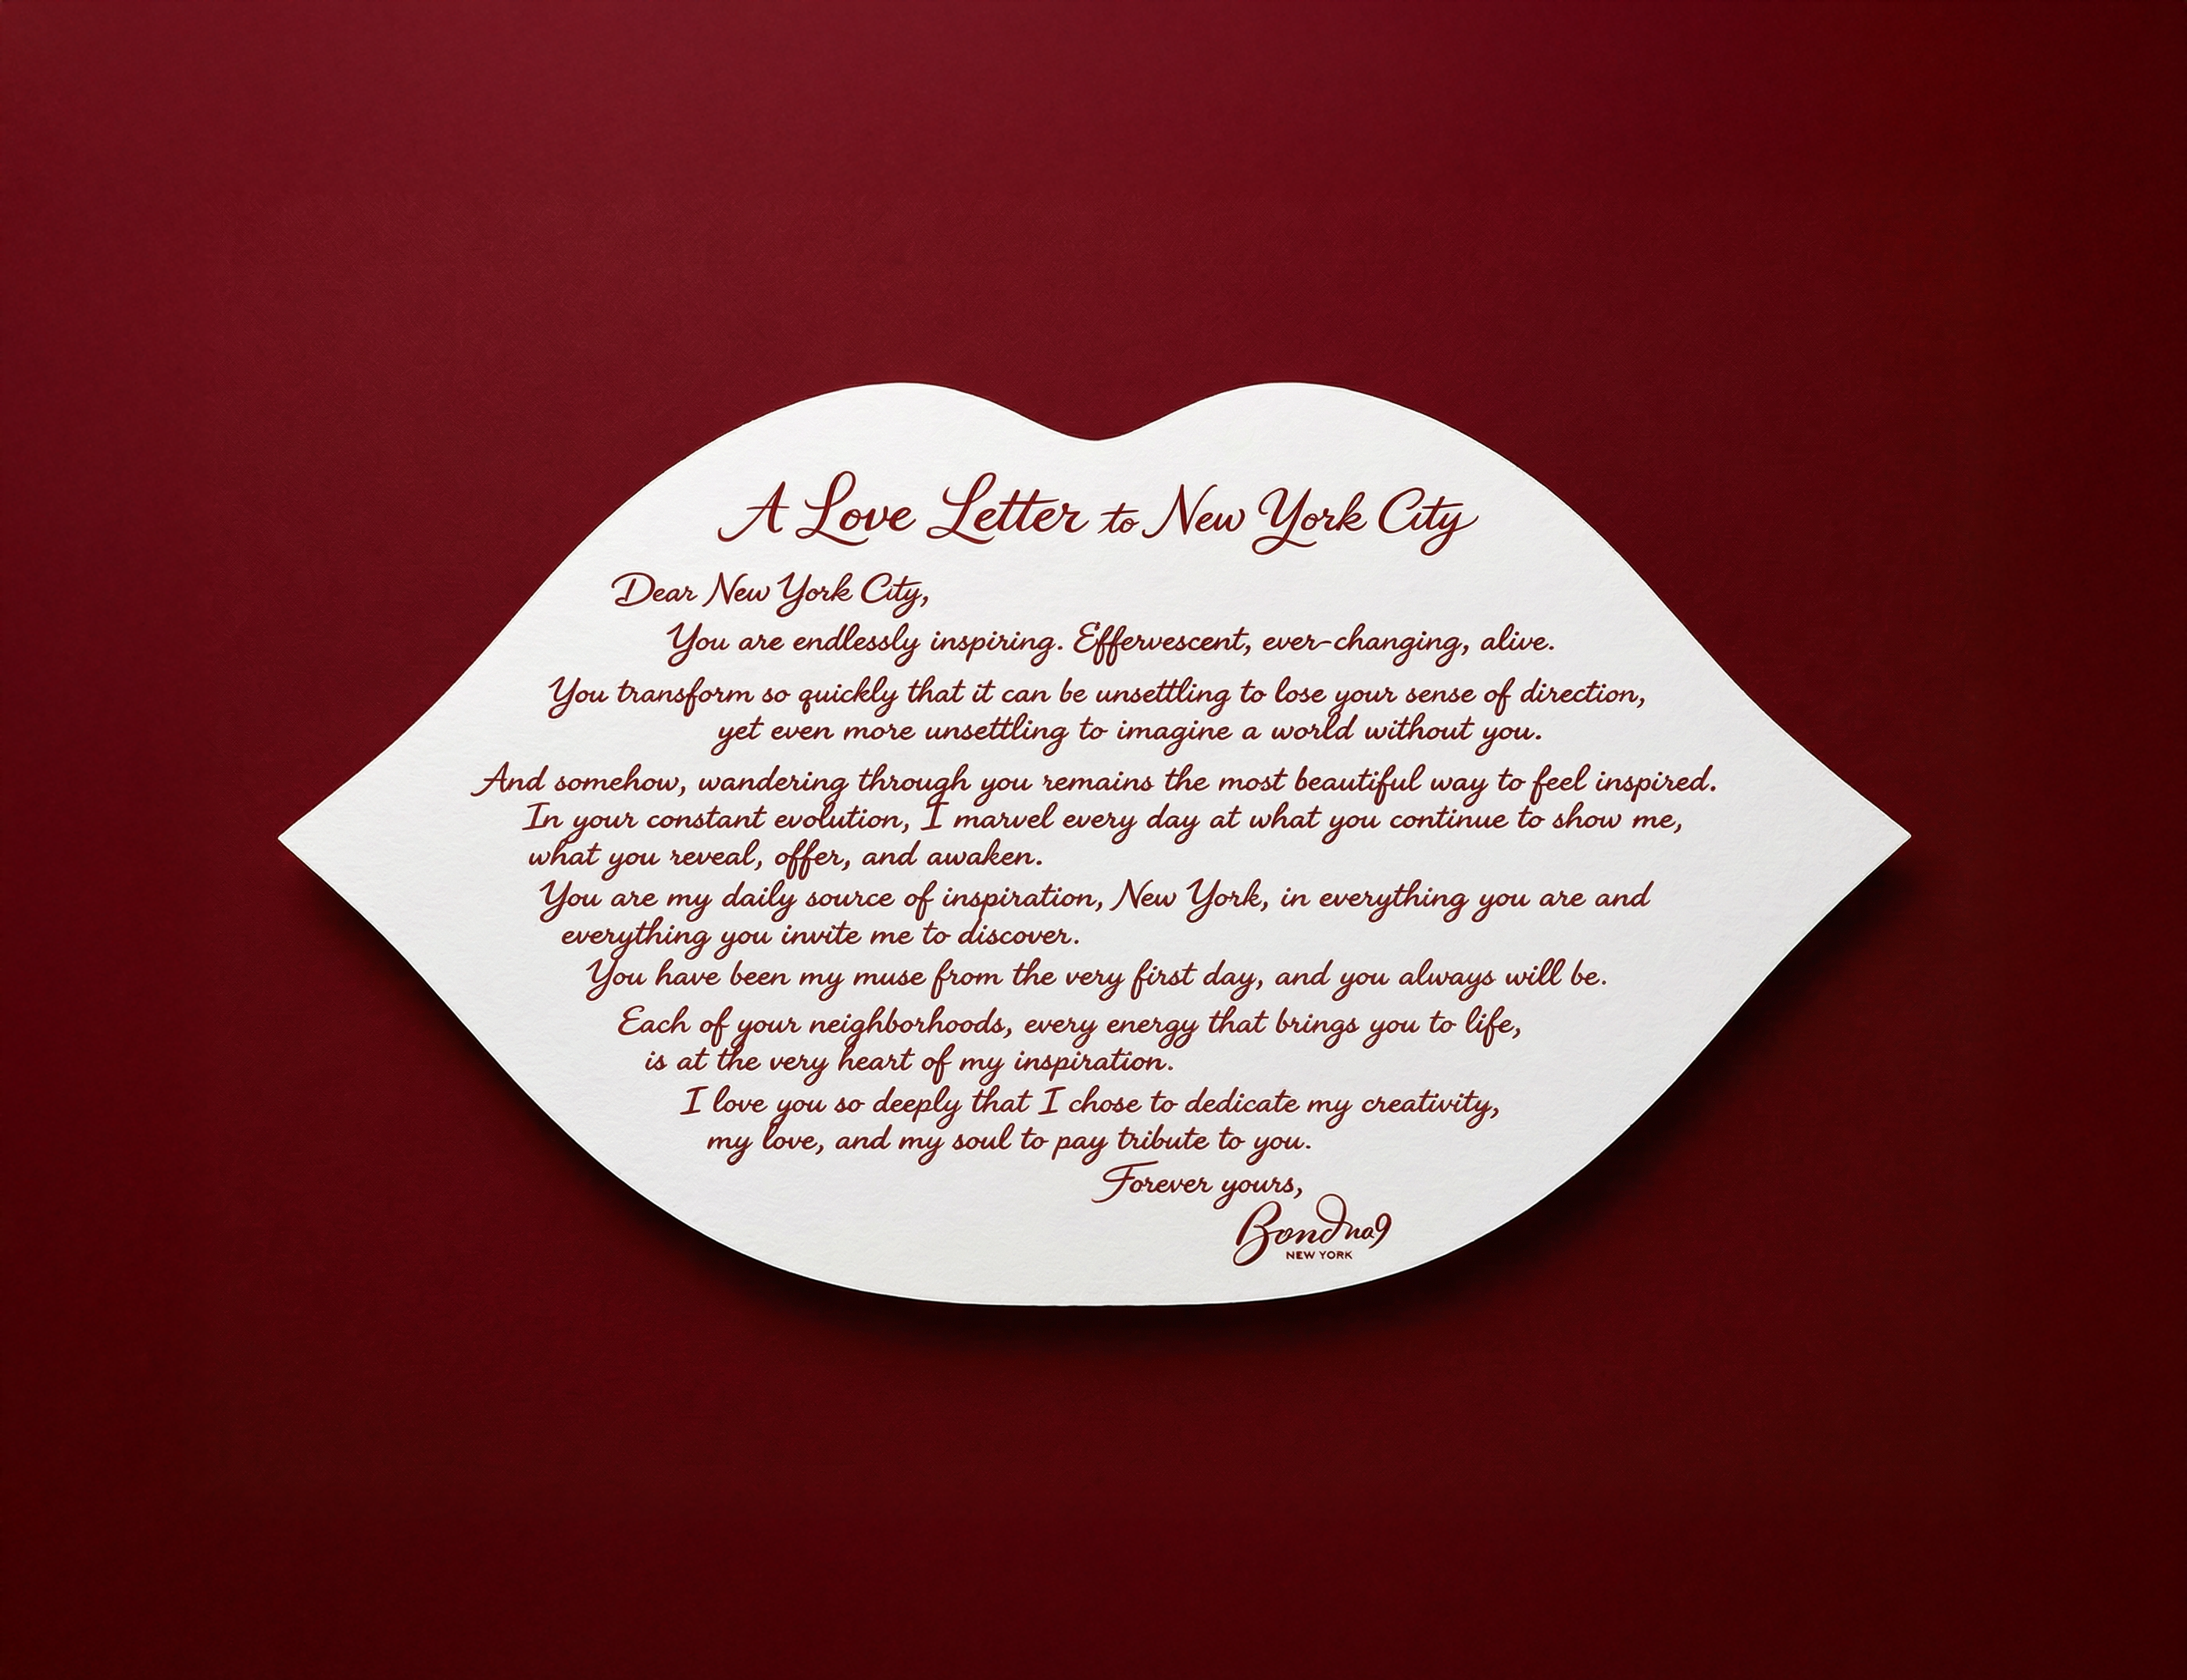 A Love Letter to New York City
Dear New York City,
You are endlessly inspiring. Effervescent, ever-changing, alive.
You transform so quickly that it can be unsettling to lose your sense of direction,
yet even more unsettling to imagine a world without you.
And somehow, wandering through you remains the most beautiful way to feel inspired.
In your constant evolution, I marvel every day at what you continue to show me,
what you reveal, offer, and awaken.
You are my daily source of inspiration, New York, in everything you are and
everything you invite me to discover.
You have been my muse from the very first day, and you always will be.
Each of your neighborhoods, every energy that brings you to life,
is at the very heart of my inspiration.
I love you so deeply that I chose to dedicate my creativity,
my love, and my soul to pay tribute to you.
Forever yours,
Bond no9
NEW YORK